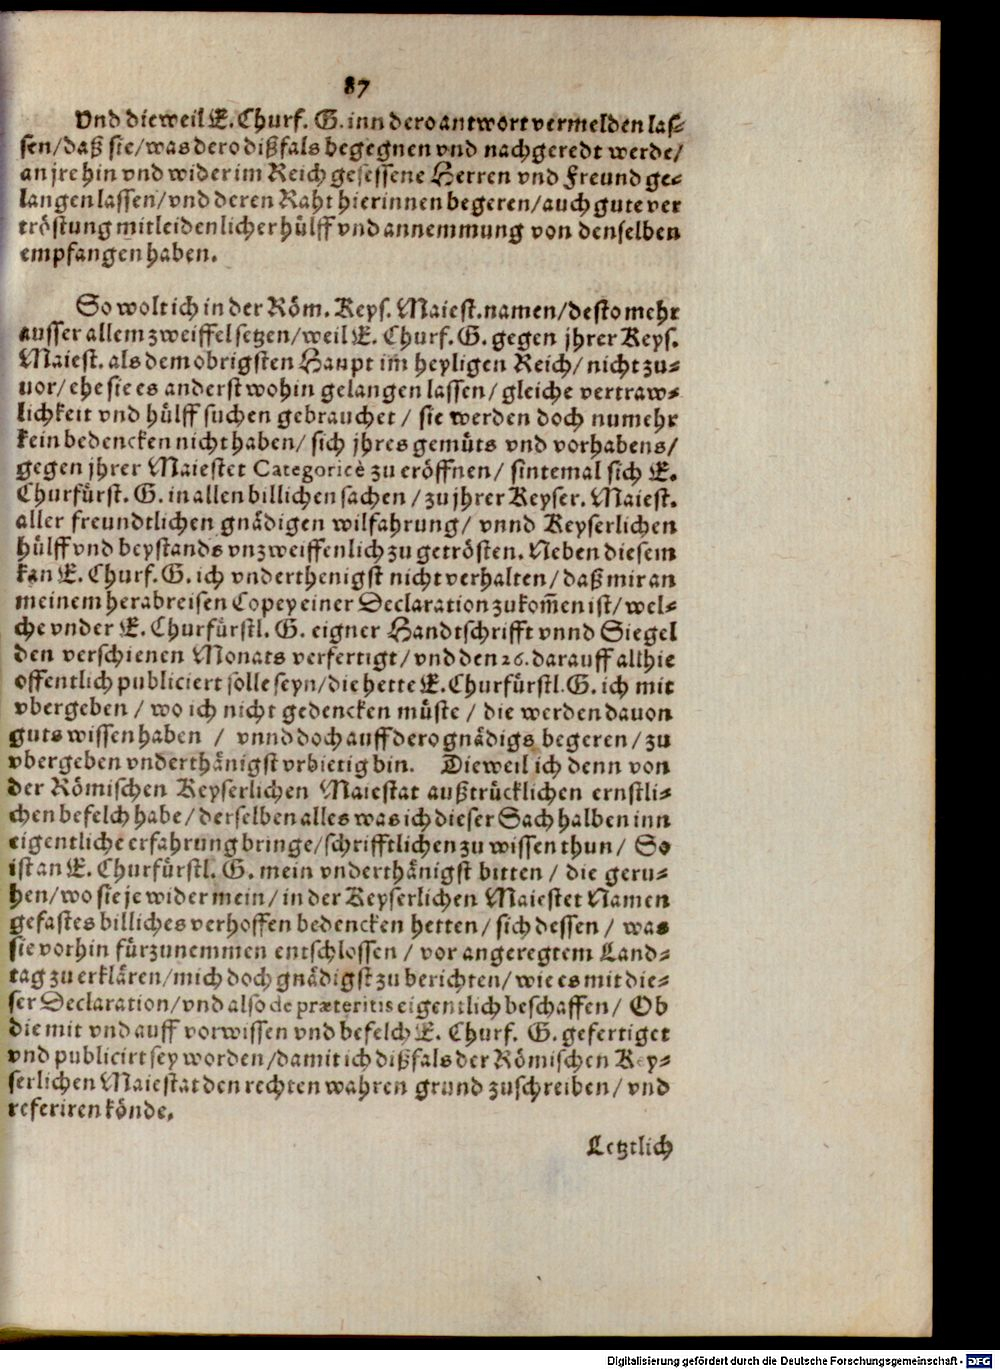 87
Vnd dieweil E. Churf. G. inn dero antwort vermelden las⸗
sen/ daß sie/ was dero dißfals begegnen vnd nachgeredt werde/
an jre hin vnd wider im Reich gesessene Herren vnd Freund ge⸗
langen lassen/ vnd deren Raht hierinnen begeren/ auch gute ver
tröstung mitleidenlicher hülff vnd annemmung von denselben
empfangen haben.
So wolt ich in der Röm. Keys. Maiest. namen/ desto mehr
ausser allem zweiffel setzen/ weil E. Churf. G. gegen jhrer Keys.
Maiest. als dem obrigsten Haupt im heyligen Reich/ nicht zu⸗
uor/ ehe sie es anderst wohin gelangen lassen/ gleiche vertraw⸗
lichkeit vnd hülff suchen gebrauchet/ sie werden doch numehr
kein bedencken nicht haben/ sich jhres gemüts vnd vorhabens/
gegen jhrer Maiestet Categoricè zu eröffnen/ sintemal sich E.
Churfürst. G. in allen billichen sachen/ zu jhrer Keyser. Maiest.
aller freundtlichen gnädigen wilfahrung/ vnnd Keyserlichen
hülff vnd beystands vnzweiffenlich zu getrösten. Neben diesem
kan E. Churf. G. ich vnderthenigst nicht verhalten/ daß mir an
meinem herabreisen Copey einer Declaration zukom̃en ist/ wel⸗
che vnder E. Churfürstl. G. eigner Handtschrifft vnnd Siegel
den verschienen Monats verfertigt/ vnd den 26. darauff allhie
offentlich publiciert solle seyn/ die hette E. Churfürstl. G. ich mit
vbergeben/ wo ich nicht gedencken müste/ die werden dauon
guts wissen haben/ vnnd doch auff dero gnädigs begeren/ zu
vbergeben vnderthänigst vrbietig bin. Dieweil ich denn von
der Römischen Keyserlichen Maiestat außtrücklichen ernstli⸗
chen befelch habe/ derselben alles was ich dieser Sach halben inn
eigentliche erfahrung bringe/ schrifftlichen zu wissen thun/ So
ist an E. Churfürstl. G. mein vnderthänigst bitten/ die geru⸗
hen/ wo sie je wider mein/ in der Keyserlichen Maiestet Namen
gefastes billiches verhoffen bedencken hetten/ sich dessen/ was
sie vorhin fürzunemmen entschlossen/ vor angeregtem Land⸗
tag zu erklären/ mich doch gnädigst zu berichten/ wie es mit die⸗
ser Declaration/ vnd also de præteritis eigentlich beschaffen/ Ob
die mit vnd auff vorwissen vnd befelch E. Churf. G. gefertiget
vnd publicirt sey worden/ damit ich dißfals der Römischen Key⸗
serlichen Maiestat den rechten wahren grund zuschreiben/ vnd
referiren könde.
Letztlich
Digitalisierung gefördert durch die Deutsche Forschungsgemeinschaft - DFG